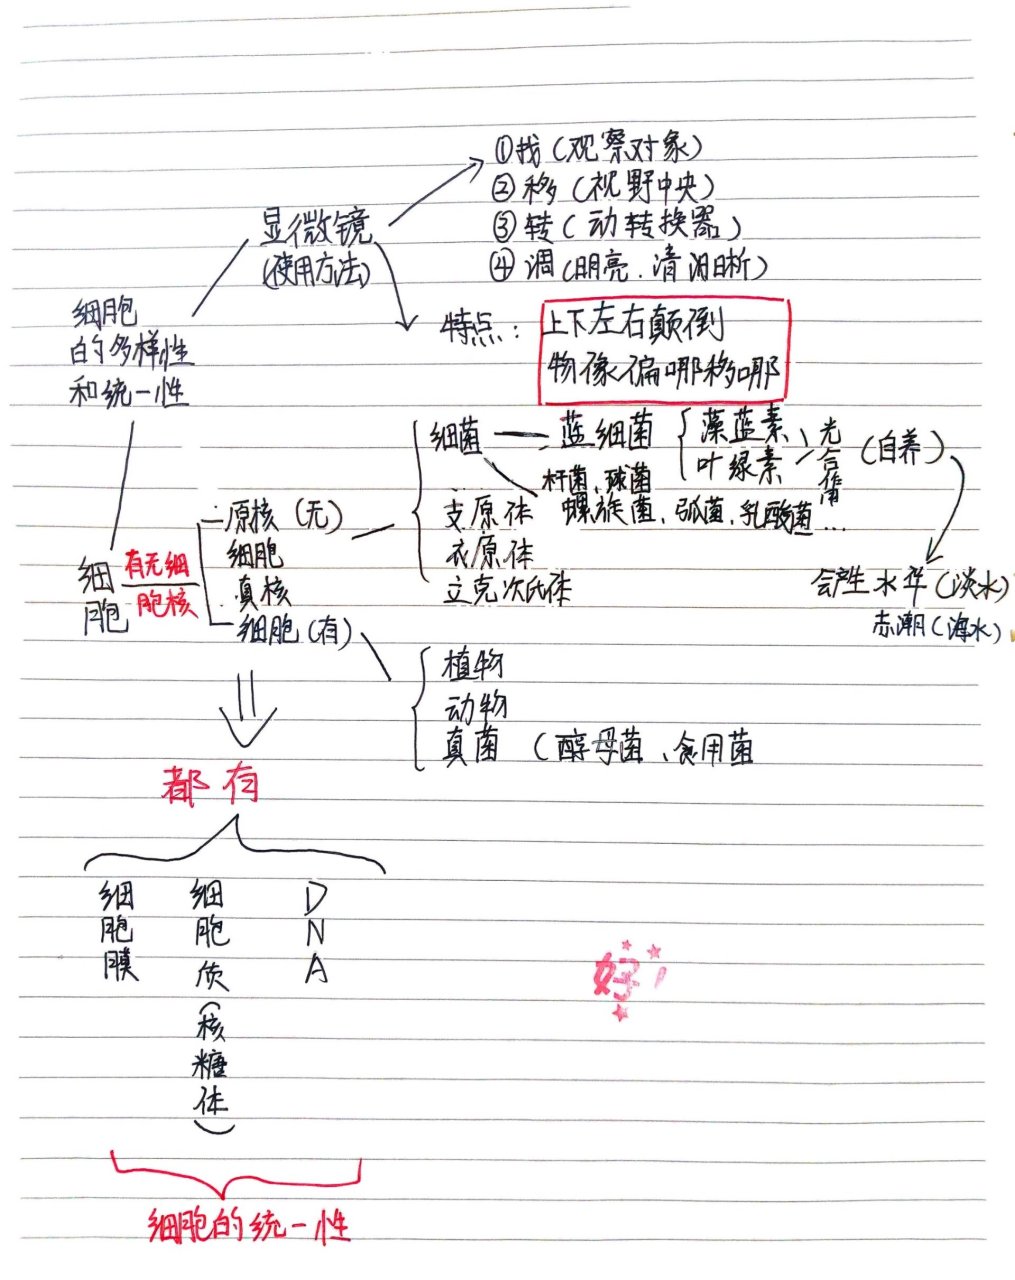 ①找(观察对象)
②移(视野中央)
③转(动转换器)
④调(明亮.清晰)
显微镜
(使用方法)
细胞
的多样性
和统一性
特点:
上下左右颠倒
物像偏哪移哪
细胞
有无细
胞核
原核(无)
细胞
真核
细胞(有)
细菌
蓝细菌
藻蓝素
叶绿素
光合作用
(自养)
杆菌、球菌
螺旋菌、弧菌、乳酸菌...
支原体
衣原体
立克次氏体
会产生水华(淡水)
赤潮(海水)
植物
动物
真菌(酵母菌、食用菌
都有
细胞膜
细胞质(核糖体)
DNA
好!
细胞的统一性